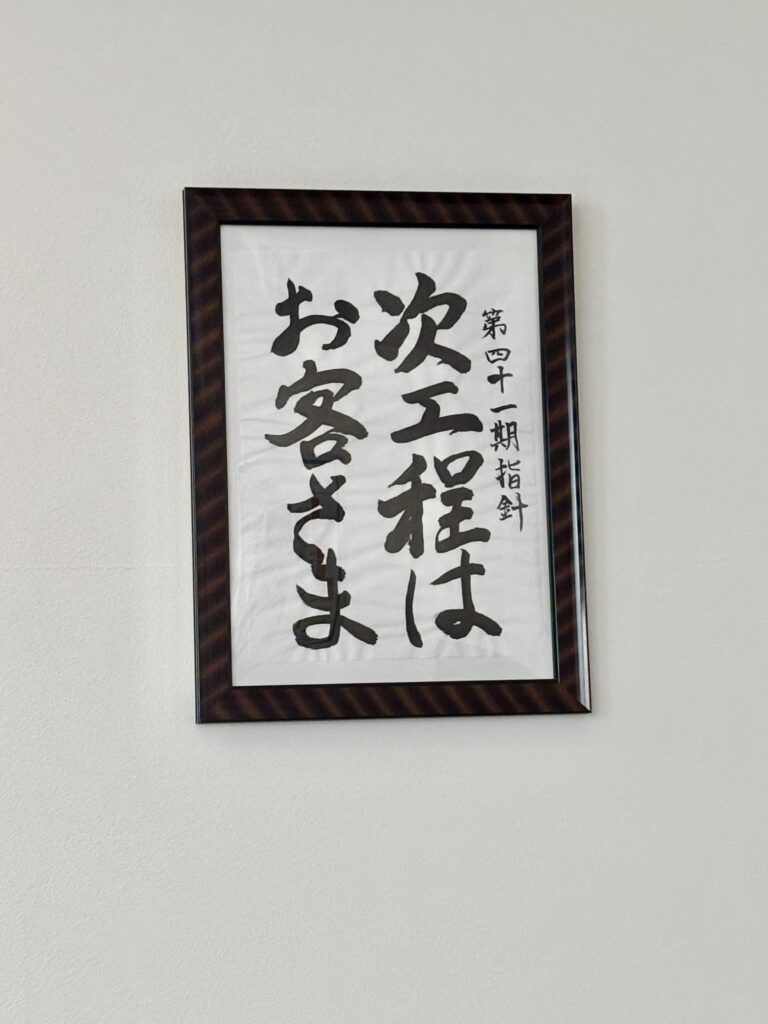 第四十一期指針
次工程は
お客さま